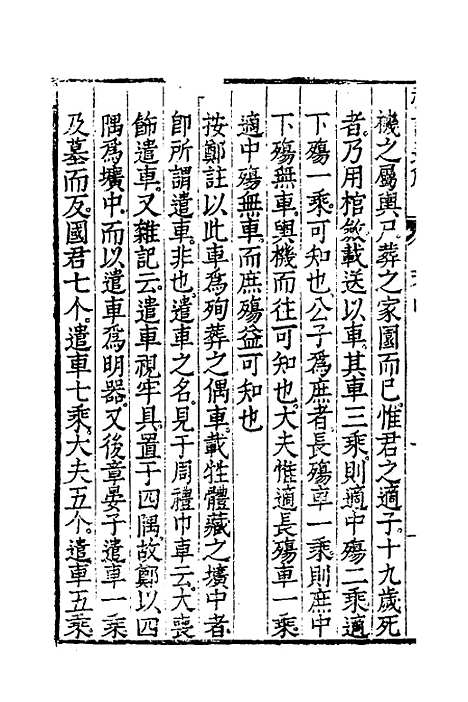 機之屬輿尸葬之家園而已惟君之適子十九歲死
者乃用棺斂載送以車其車三乘則適中殤二乘適
下殤一乘可知也公子爲庶者長殤車一乘則庶中
下殤無車輿機而往可知也大夫惟適長殤車一乘
適中殤無車而庶殤益可知也
按鄭註以此車爲殉葬之偶車載牲體藏之壙中者
卽所謂遣車非也遣車之名見于周禮巾車云大喪
飾遣車又雜記云遣車視牢具置于四隅故鄭以四
隅爲壙中而以遣車爲明器又後章晏子遣車一乘
及墓而反國君七个遣車七乘大夫五个遣車五乘